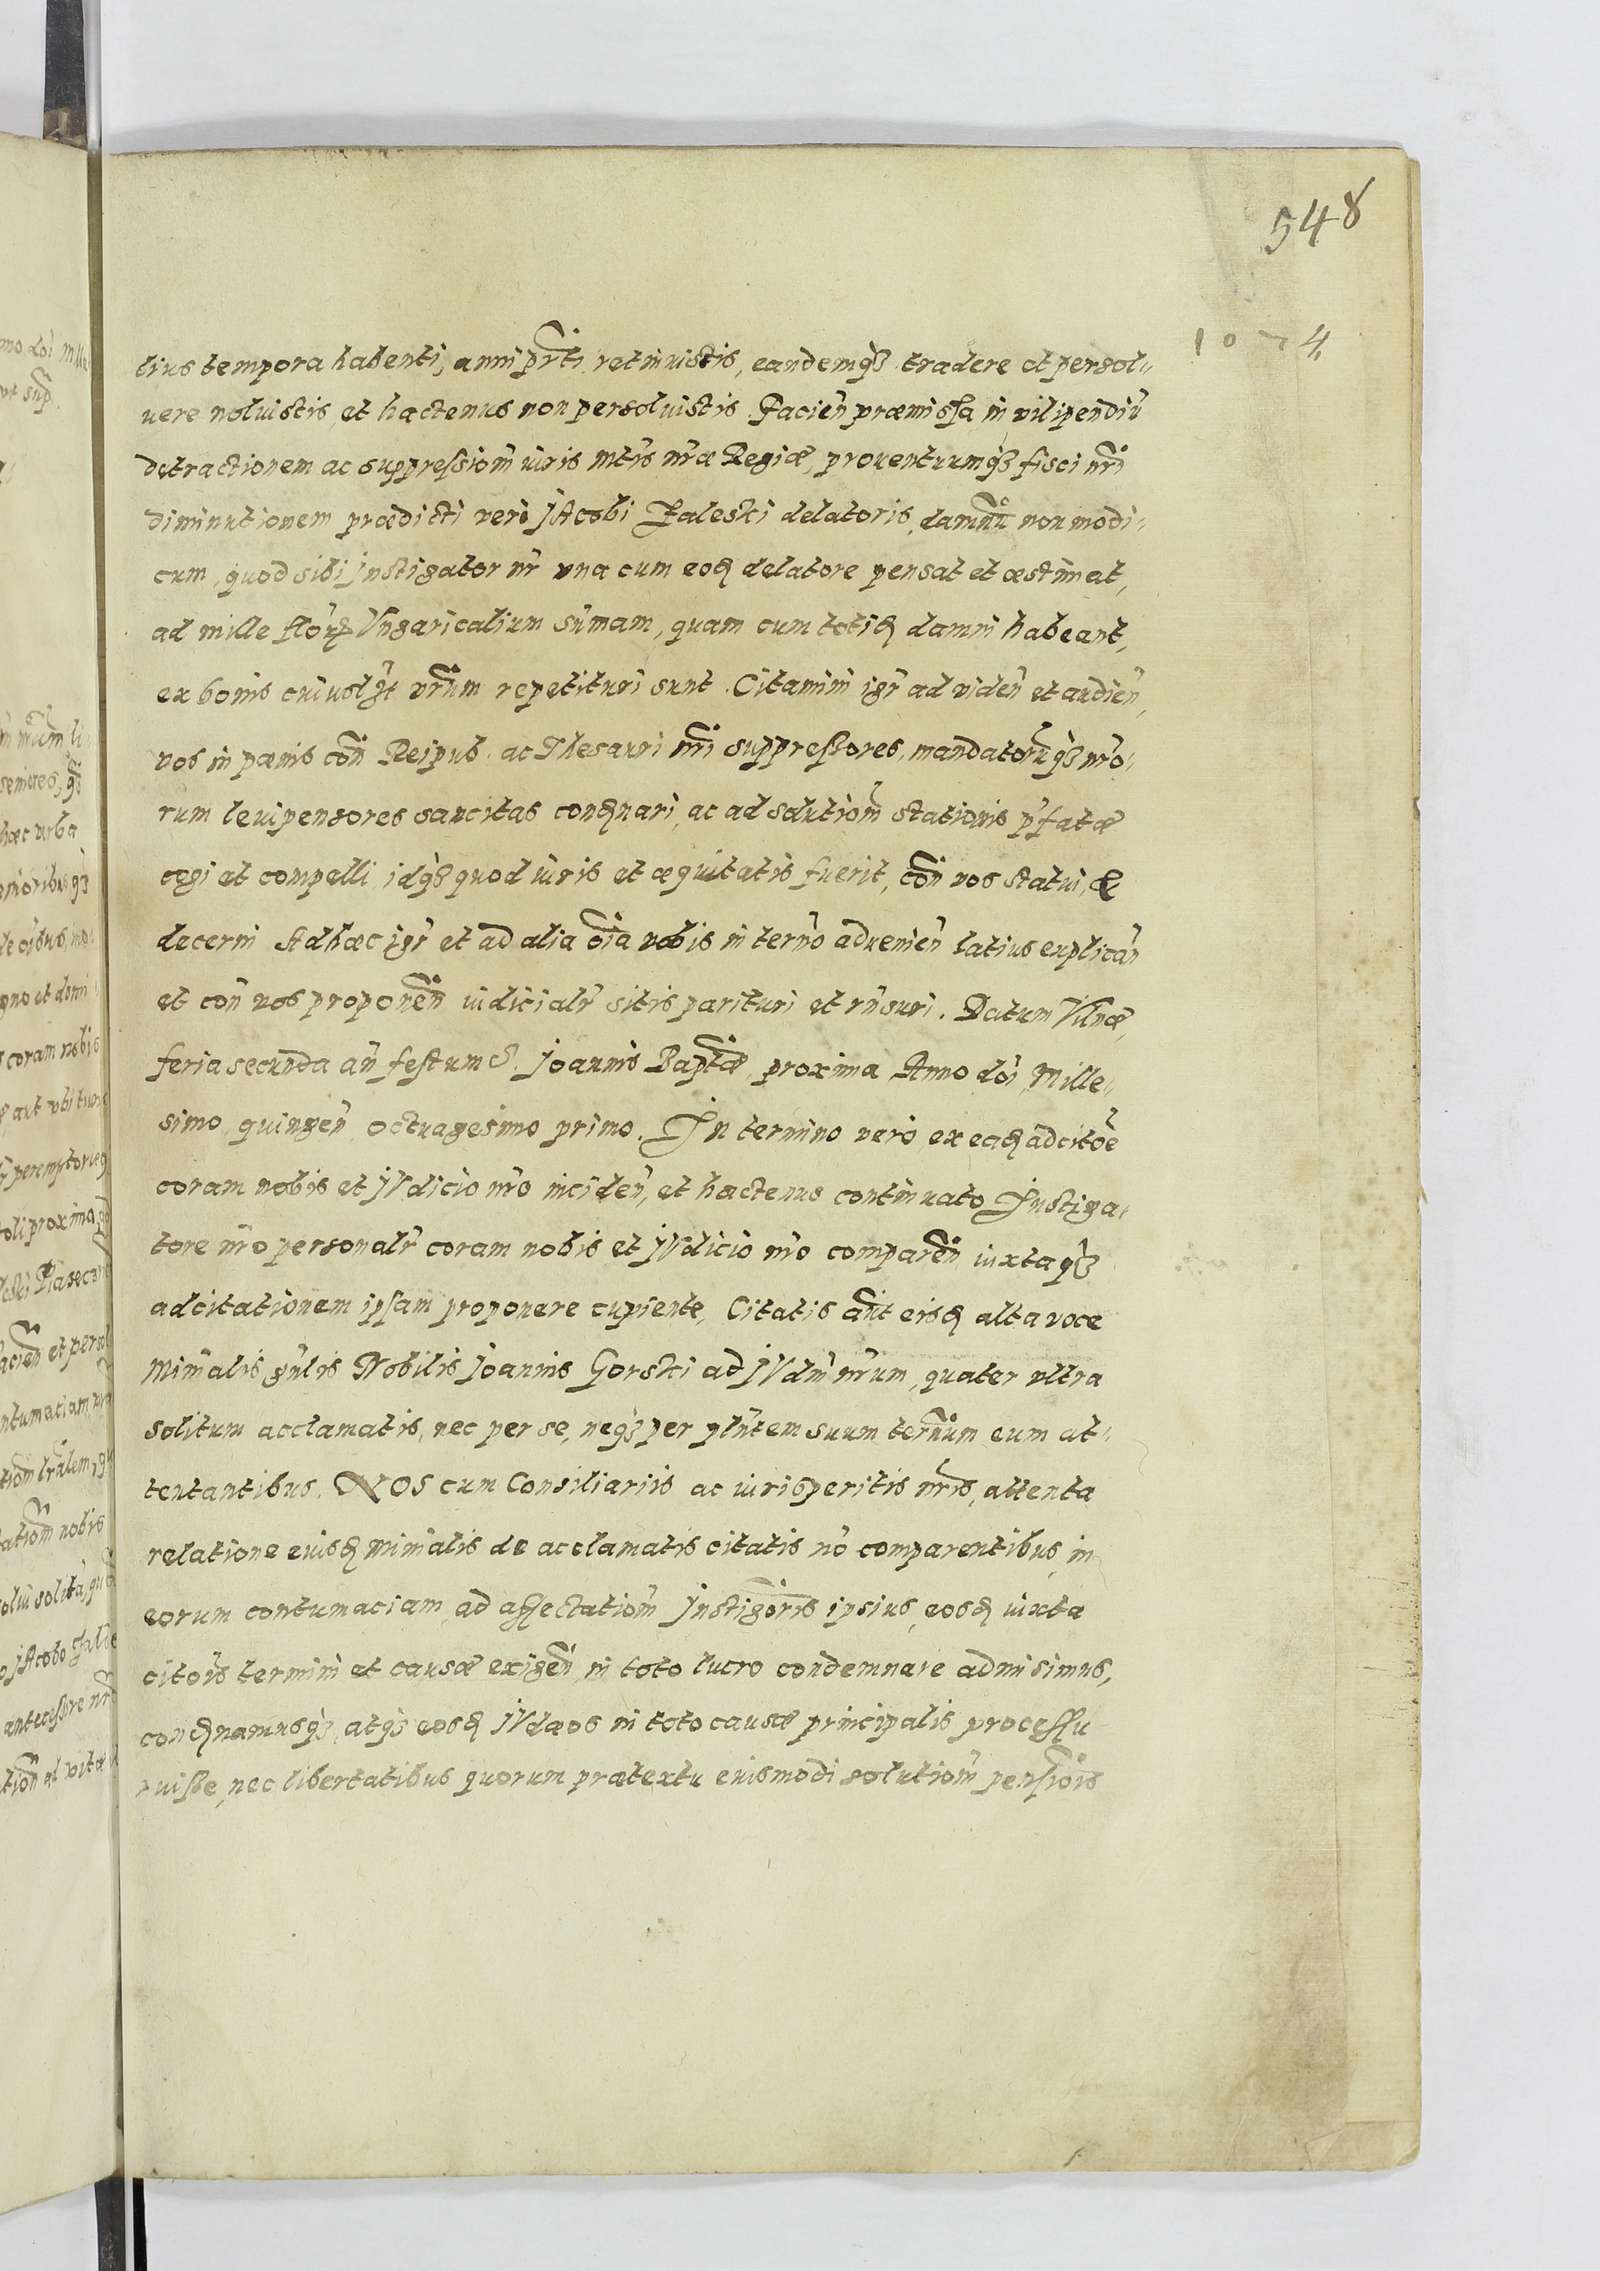 548
1074
lius tempora habenti, anni prti retinuistis, eandemq3 tradere et persol-
uere noluistis, et hactenus non persoluistis. Facien præmissa in vilipendiũ
detractionem ac suppressiom iuris Mtis nræ Regiæ, prouentuumq3 fisci nri
diminutionem prædicti vero JAcobi Zaleski delatoris, damnũ non modi-
cum, quod sibi Jnstigator nr vna cum eod delatore pensat et æstimat,
ad mille flor Vngaricalium sumam, quam cum totid damni habeant,
ex bonis cuiuslt vrum repetituri sunt. Citamini igr ad viden et audien,
vos in pænis con Reipub. ac Thesauri nri suppressores, mandatorũq3 nro-
rum leuipensores sancitas condnari, ac ad solutiom stationis pfatæ
cogi et compelli, idq3 quod iuris et æquitatis fuerit, con vos statui, &
decerni Ad hæc igr et ad alia oia vobis in terno aduenien latius explican
et con vos proponen iudicialr sitis parituri et rnsuri. Datum Vilnæ,
feria secunda an festum S. Joannis Baptæ, proxima, Anno doi Mille-
simo quingen octuagesimo primo. In termino vero ex ead adcitoe
coram nobis et JVdicio nro inciden, et hactenus continuato Instiga-
tore nro personalr coram nobis et JVdicio nro comparen iuxtaq3
adcitationem ipsam proponere cupiente, Citatis aut eisd alta voce
Minalis gnlis Nobilis Joannis Gorski ad JVdm nrum, quater vltra
solitum acclamatis, nec per se, neq3 per plntem suum ternum eum at-
tentantibus. NOS cum Consiliariis ac iurisperitis nris, attenta
relatione eiusd Minalis de acclamatis citatis no comparentibus, in
eorum contumaciam, ad affectatiom Jnstigoris ipsius, eosd iuxta
citois termini et causæ exigen in toto lucro condemnare admisimus,
condnamusq3, atq3 eosd JVdæos in toto causæ principalis processu
ruisse, nec libertatibus quorum prætextu eiusmodi solutiom pensiois